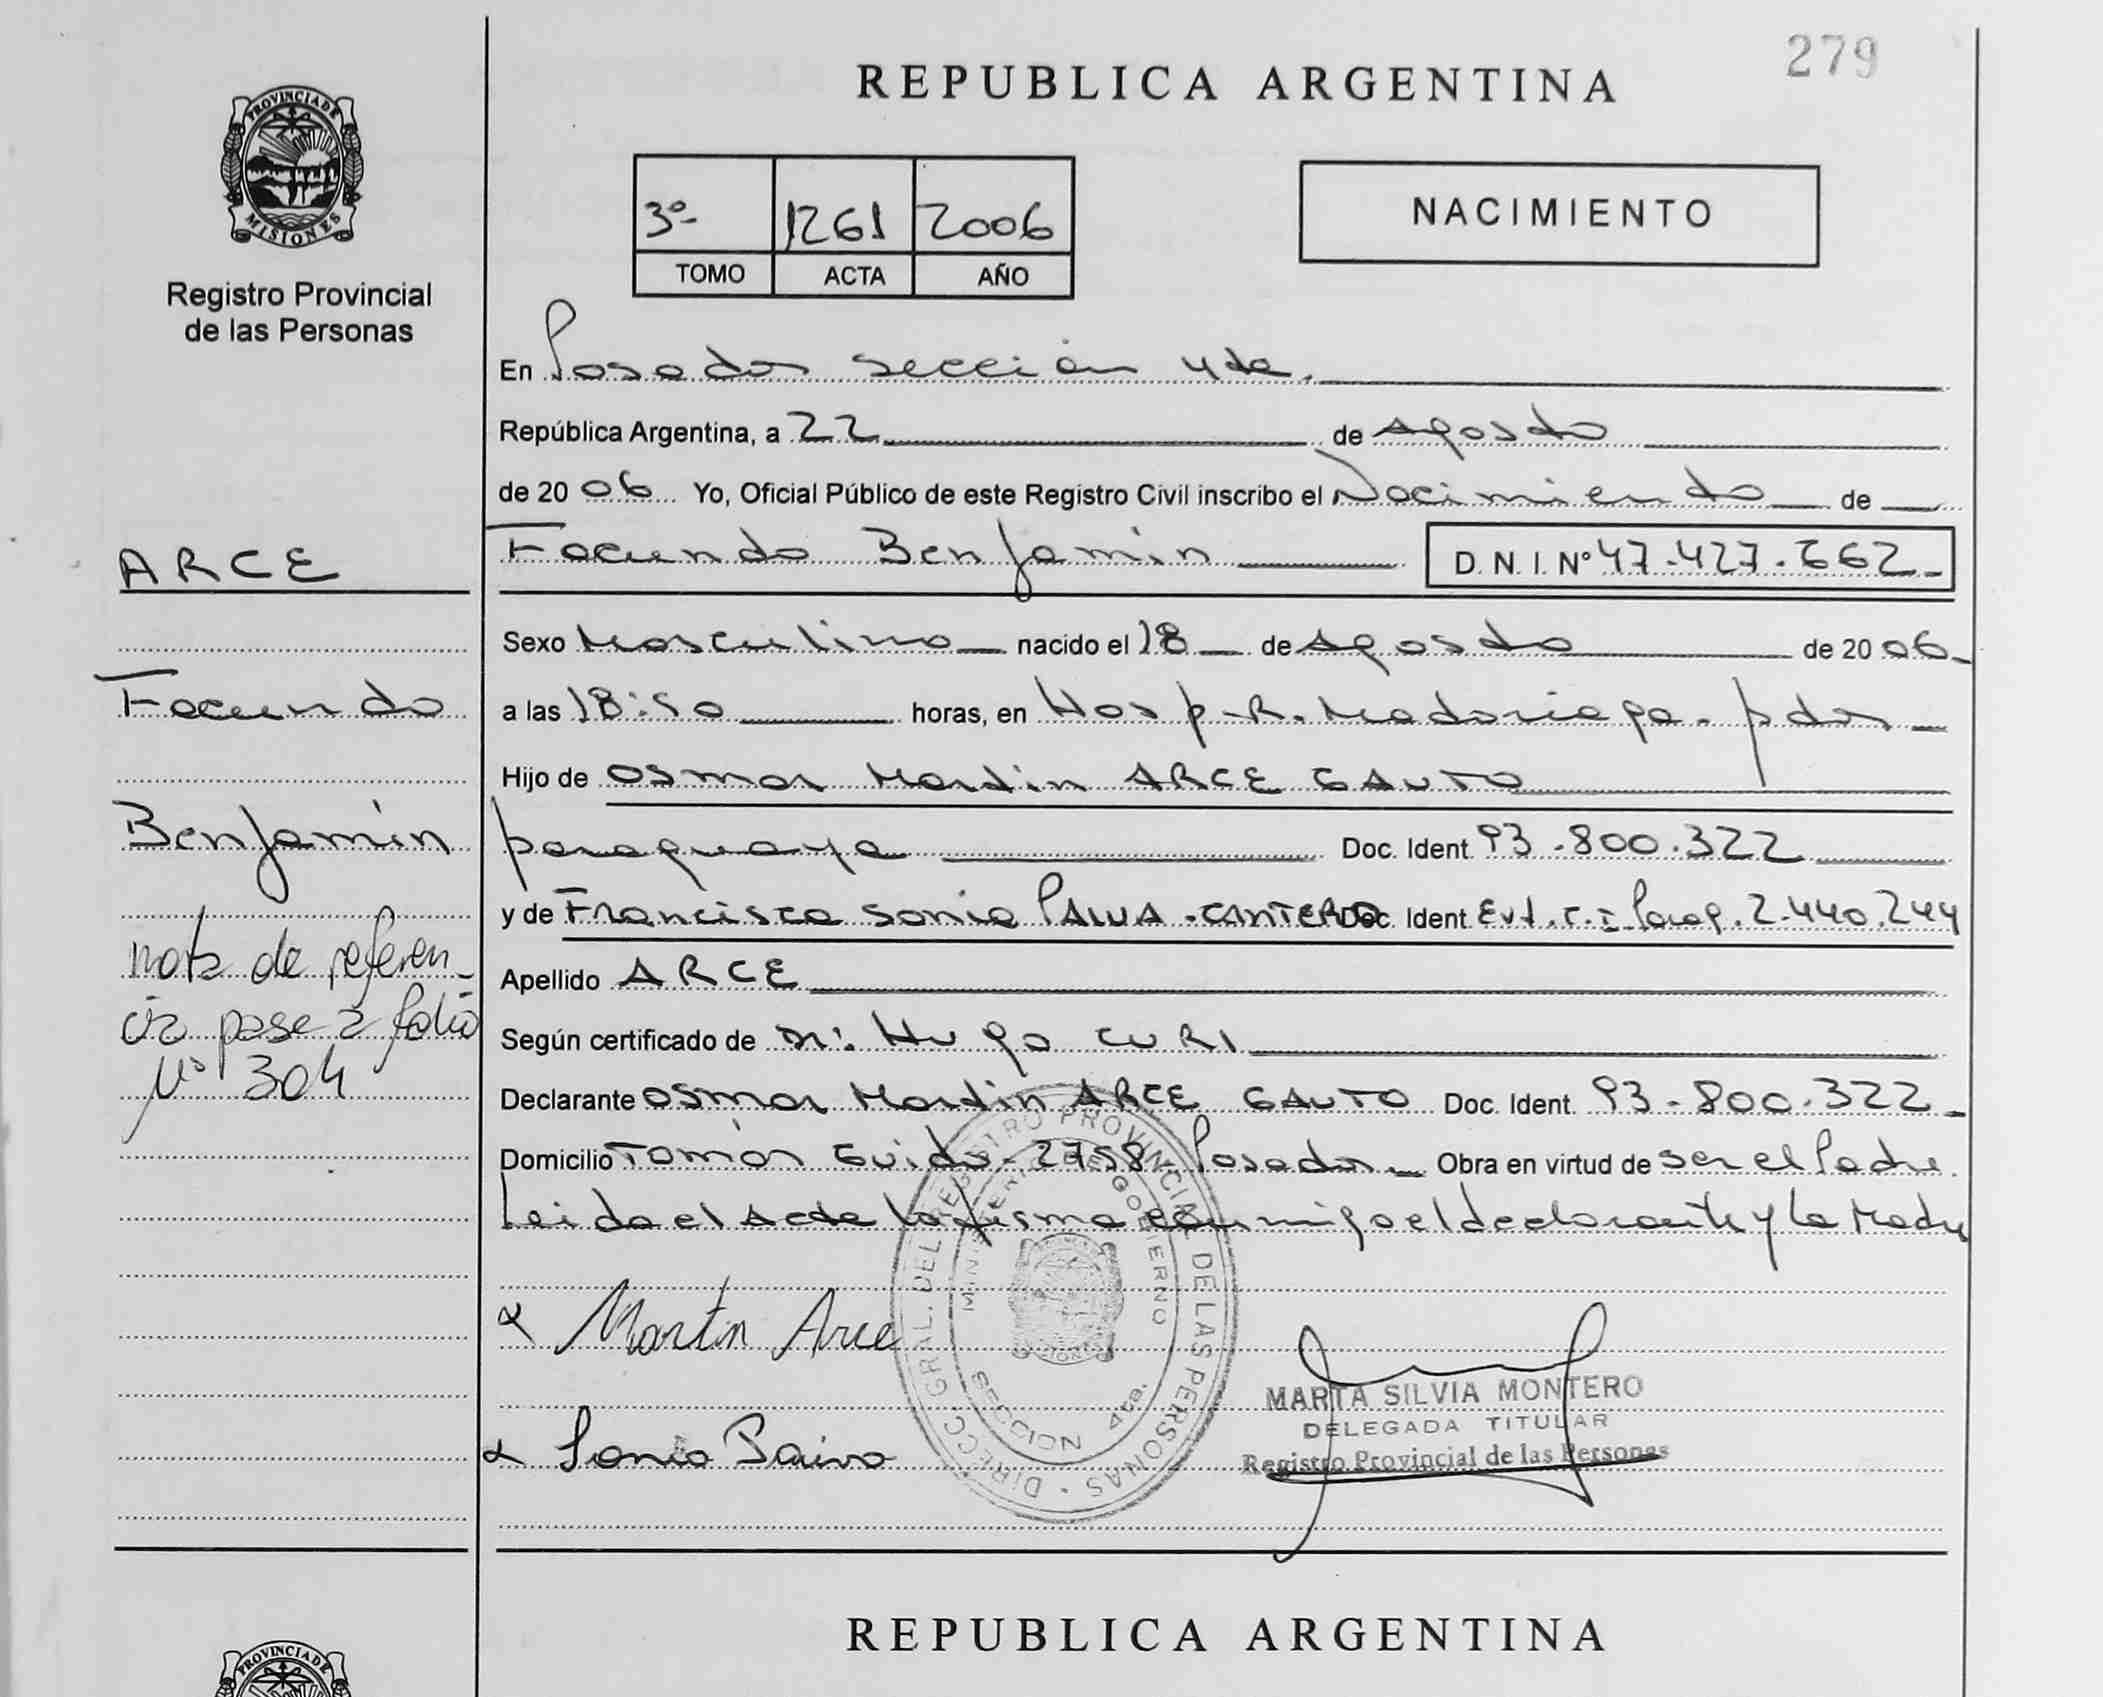 279
REPUBLICA ARGENTINA
PROVINCIA DE
MISIONES
Registro Provincial
de las Personas
3º 1261 2006
TOMO ACTA AÑO
NACIMIENTO
En Posadas sección 4ta.
República Argentina, a 22 de Agosto
de 2006 Yo, Oficial Público de este Registro Civil inscribo el Nacimiento de
ARCE
Facundo Benjamin D.N.I. Nº 47.427.662
Sexo Masculino nacido el 18 de Agosto de 2006
Facundo
a las 18:50 horas, en Hosp. R. Madariaga. pdas
Hijo de Osmar Martin ARCE GAUTO
Benjamin
paraguaya Doc. Ident. 93.800.322
y de Francisca Sonia PAIVA - CANTERO Doc. Ident. C.I. Parag. 2.440.244
nota de referen-
cia pase a folio
Nº 304
Apellido ARCE
Según certificado de Dr. Hugo CURI
Declarante Osmar Martin ARCE GAUTO Doc. Ident. 93.800.322
Domicilio Tomás Guido 2758 Posadas Obra en virtud de ser el Padre.
Leida el Acta la firma conmigo el declarante y la Madre
DIRECC. GRAL. DEL REGISTRO PROVINCIAL DE LAS PERSONAS
MINISTERIO DE GOBIERNO
SECCION 4ta.
Martin Arce
MARTA SILVIA MONTERO
DELEGADA TITULAR
Registro Provincial de las Personas
Sonia Paiva
REPUBLICA ARGENTINA
PROVINCIA DE